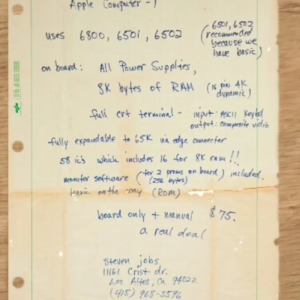 Apple Computer-1
uses 6800, 6501, 6502
(6501, 6502
recommended
because we
have basic)
on board: All Power Supplies,
8K bytes of RAM (16 pin 4K
dynamic)
full crt terminal - input: ASCII Keybd
output: composite video
fully expandable to 65K via edge connector
58 ic's which includes 16 for 8K ram!!
monitor software (for 2 proms on board) included.
(256 bytes)
basic on the way (ROM)
board only + manual $75.
a real deal
steven jobs
11161 Crist dr.
Los Altos, Ca 94022
(415) 968-3596